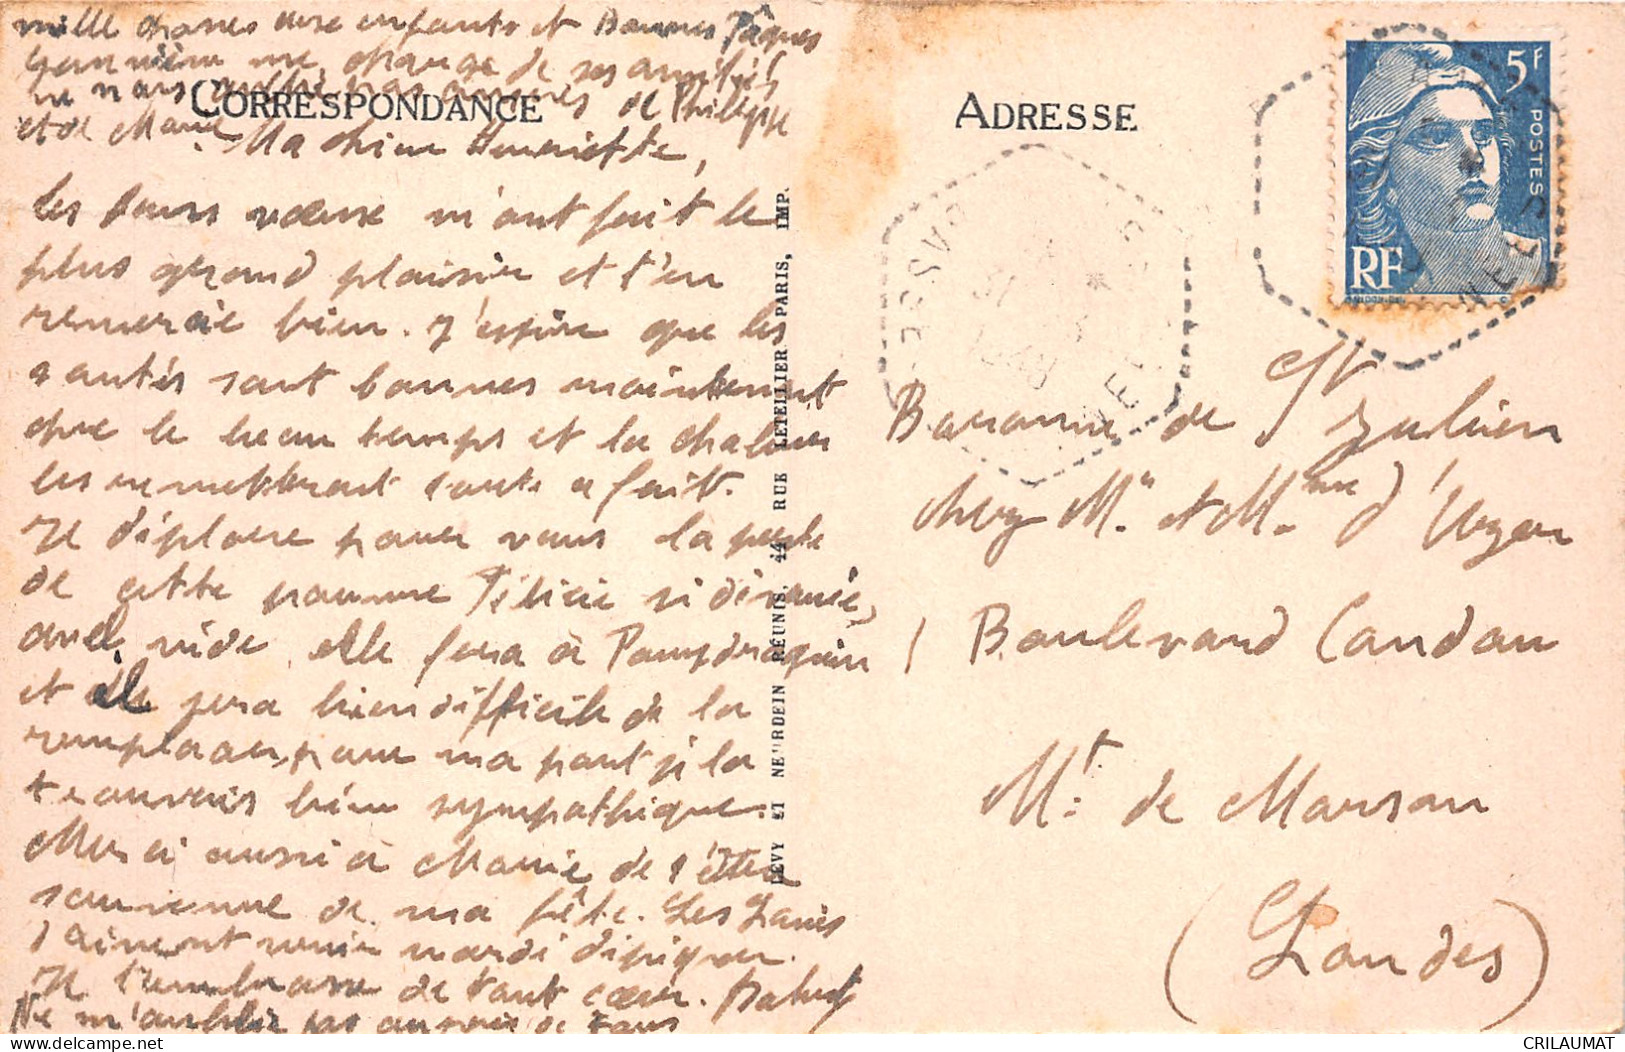 mille choses aux enfants et Bonnes Pâques
me charge de ses amitiés
ne m'oublie pas auprès de Philippe
et de Marie.
CORRESPONDANCE
Ma chère Henriette,
les bons vœux m'ont fait le
plus grand plaisir et t'en
remercie bien. J'espère que les
santés sont bonnes maintenant
que le beau temps et la chaleur
les remettront tout à fait.
Je déplore pour vous la perte
de cette pauvre Félicie si dévouée,
quel vide elle fera à
et elle sera bien difficile de la
remplacer, pour ma part je la
trouvais bien sympathique.
Merci aussi à Marie de s'être
souvenue de ma fête. Les
venir mardi
Je t'embrasse de tout cœur.
Ne m'oublie pas auprès de tous
LEVY ET NEURDEIN RÉUNIS, 44 RUE LETELLIER PARIS, IMP.
ADRESSE
5F
POSTES
RF
Baronne de St Julien
chez Mr. et Mme d'
1 Boulevard Candau
Mt. de Marsan
(Landes)
CRILAUMAT